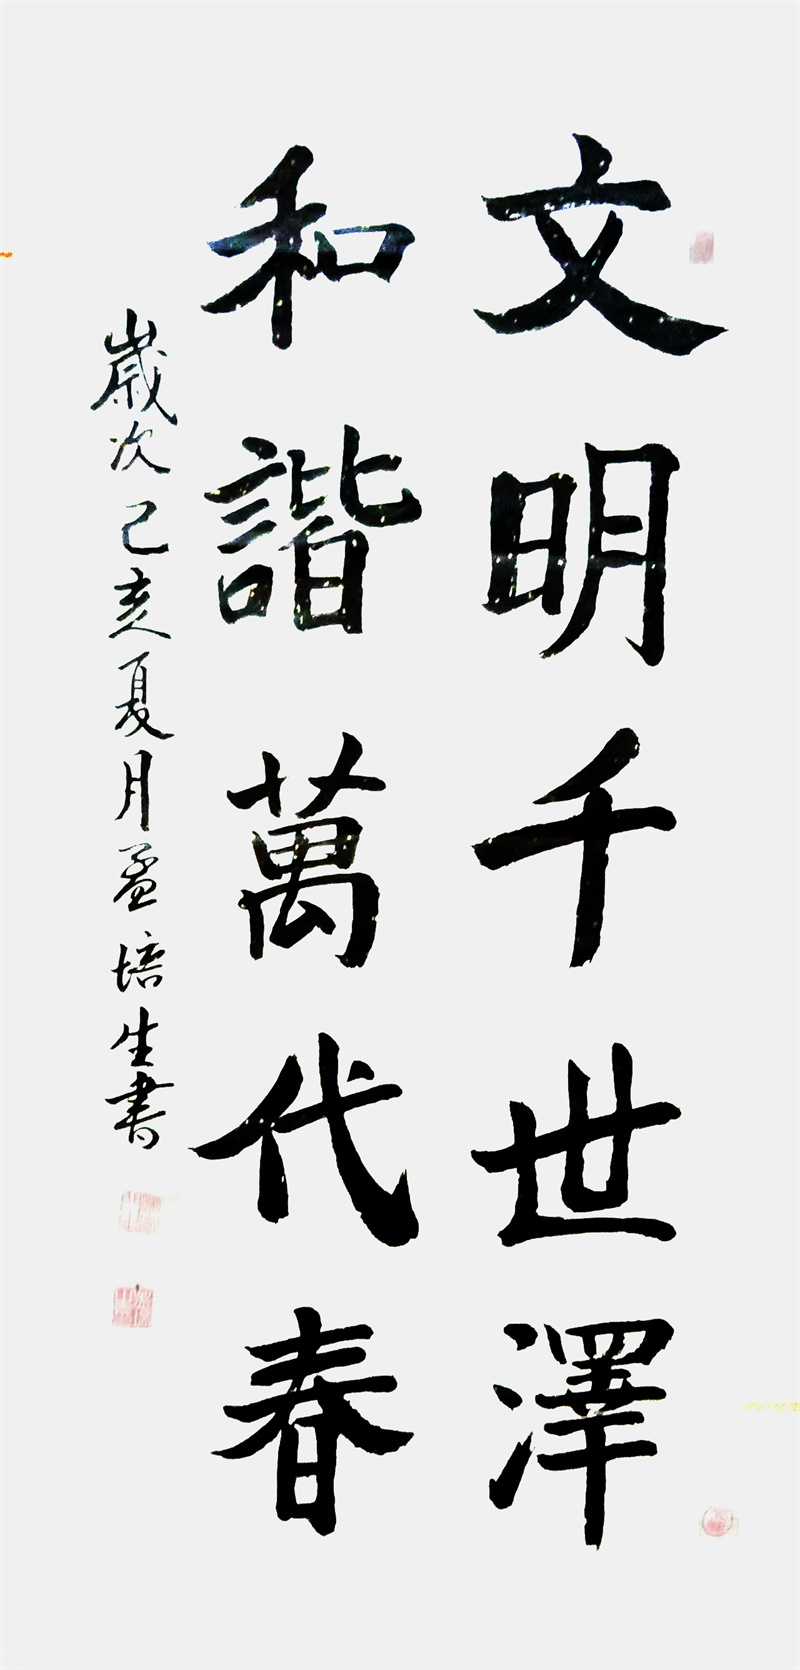 文明千世澤
和諧萬代春
歲次己亥夏月孟培生書